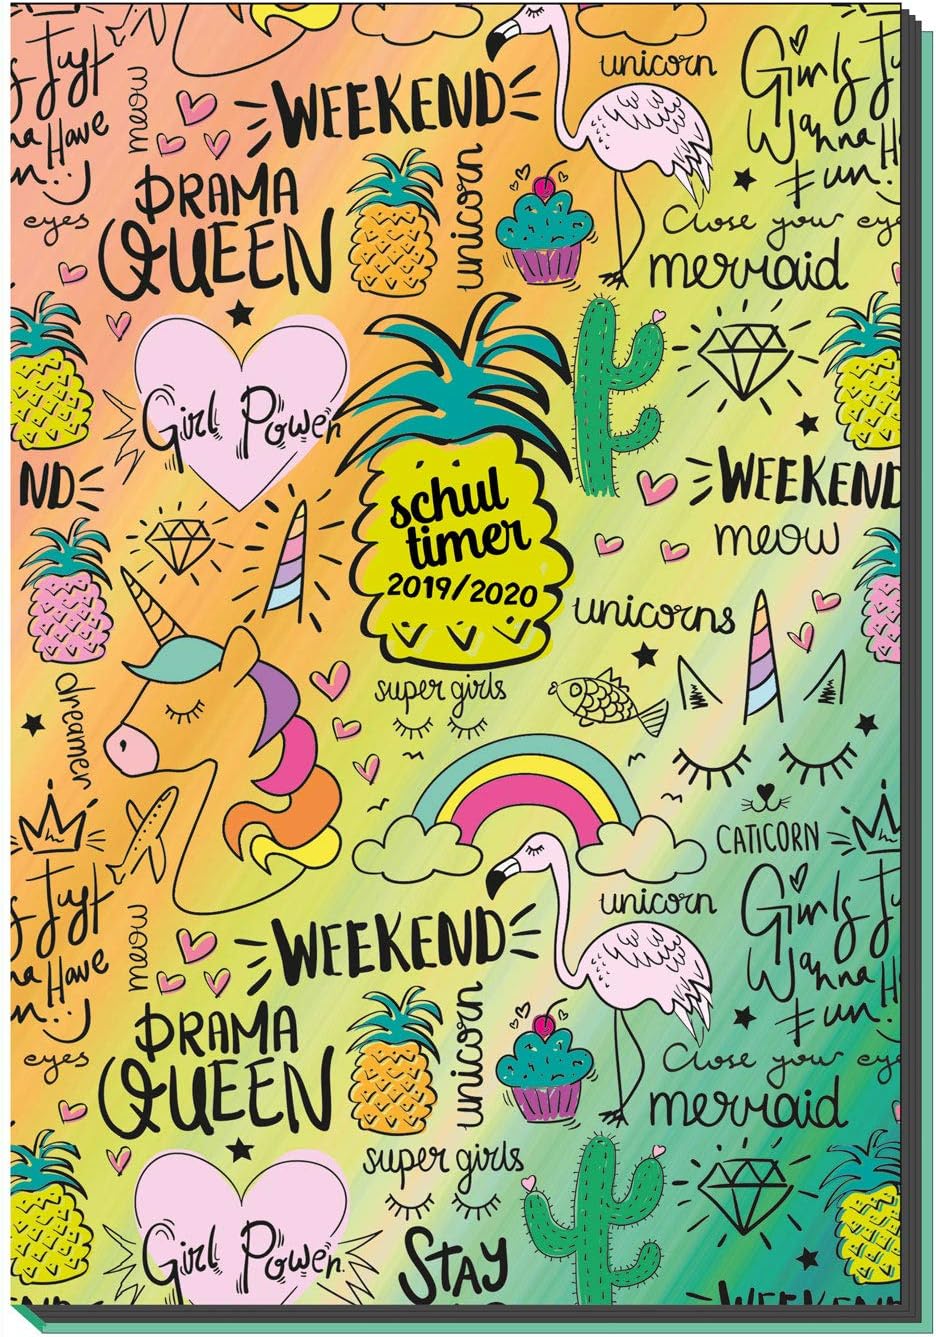 Just
Have
eyes
meow
WEEKEND
unicorn
Girls
Wanna
Fun!
DRAMA
QUEEN
unicorn
Close your eyes
mermaid
Girl Power
schul
timer
2019/2020
ND
WEEKEND
meow
unicorns
super girls
dreamer
CATICORN
Just
Have
eyes
meow
WEEKEND
unicorn
Girls
Wanna
Fun!
DRAMA
QUEEN
unicorn
Close your eye
mermaid
super girls
Girl Power
STAY
WEEKEN